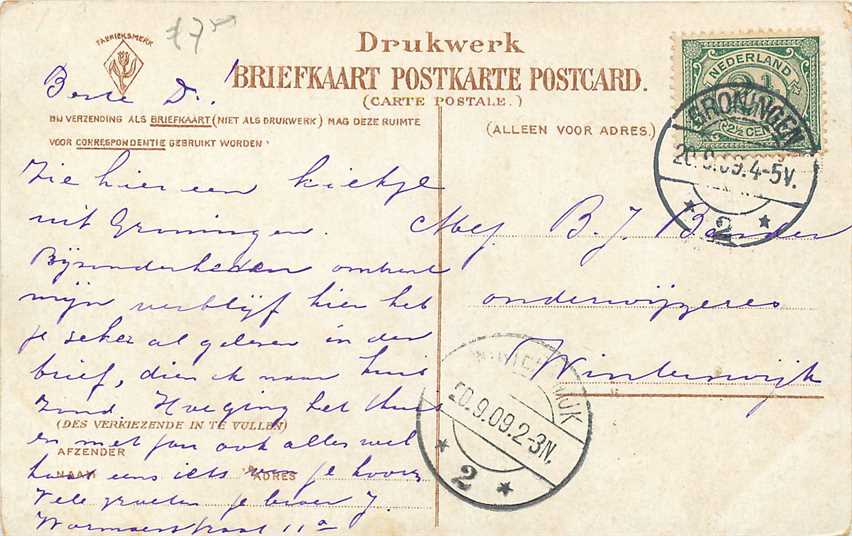 £7
FABRIEKSMERK
Drukwerk
BRIEFKAART POSTKARTE POSTCARD.
(CARTE POSTALE.)
BIJ VERZENDING ALS BRIEFKAART (NIET ALS DRUKWERK) MAG DEZE RUIMTE
VOOR CORRESPONDENTIE GEBRUIKT WORDEN
(ALLEEN VOOR ADRES.)
NEDERLAND
2½
2½ CENT
GRONINGEN
20.9.09.4-5V.
2
Beste D.!
Zie hier een kiekje
uit Groningen.
Bijzonderheden omtrent
mijn verblijf hier heb
je zeker al gelezen in den
brief, dien ik naar huis
zond. Hoe ging het thuis
en met jou ook alles wel
eens iets van je hooren
Vele groeten je broer J.
11a
(DES VERKIEZENDE IN TE VULLEN)
AFZENDER
NAAM
ADRES
Mej B. J.
onderwijzeres
Winterswijk
WINTERSWIJK
20.9.09.2-3N.
2